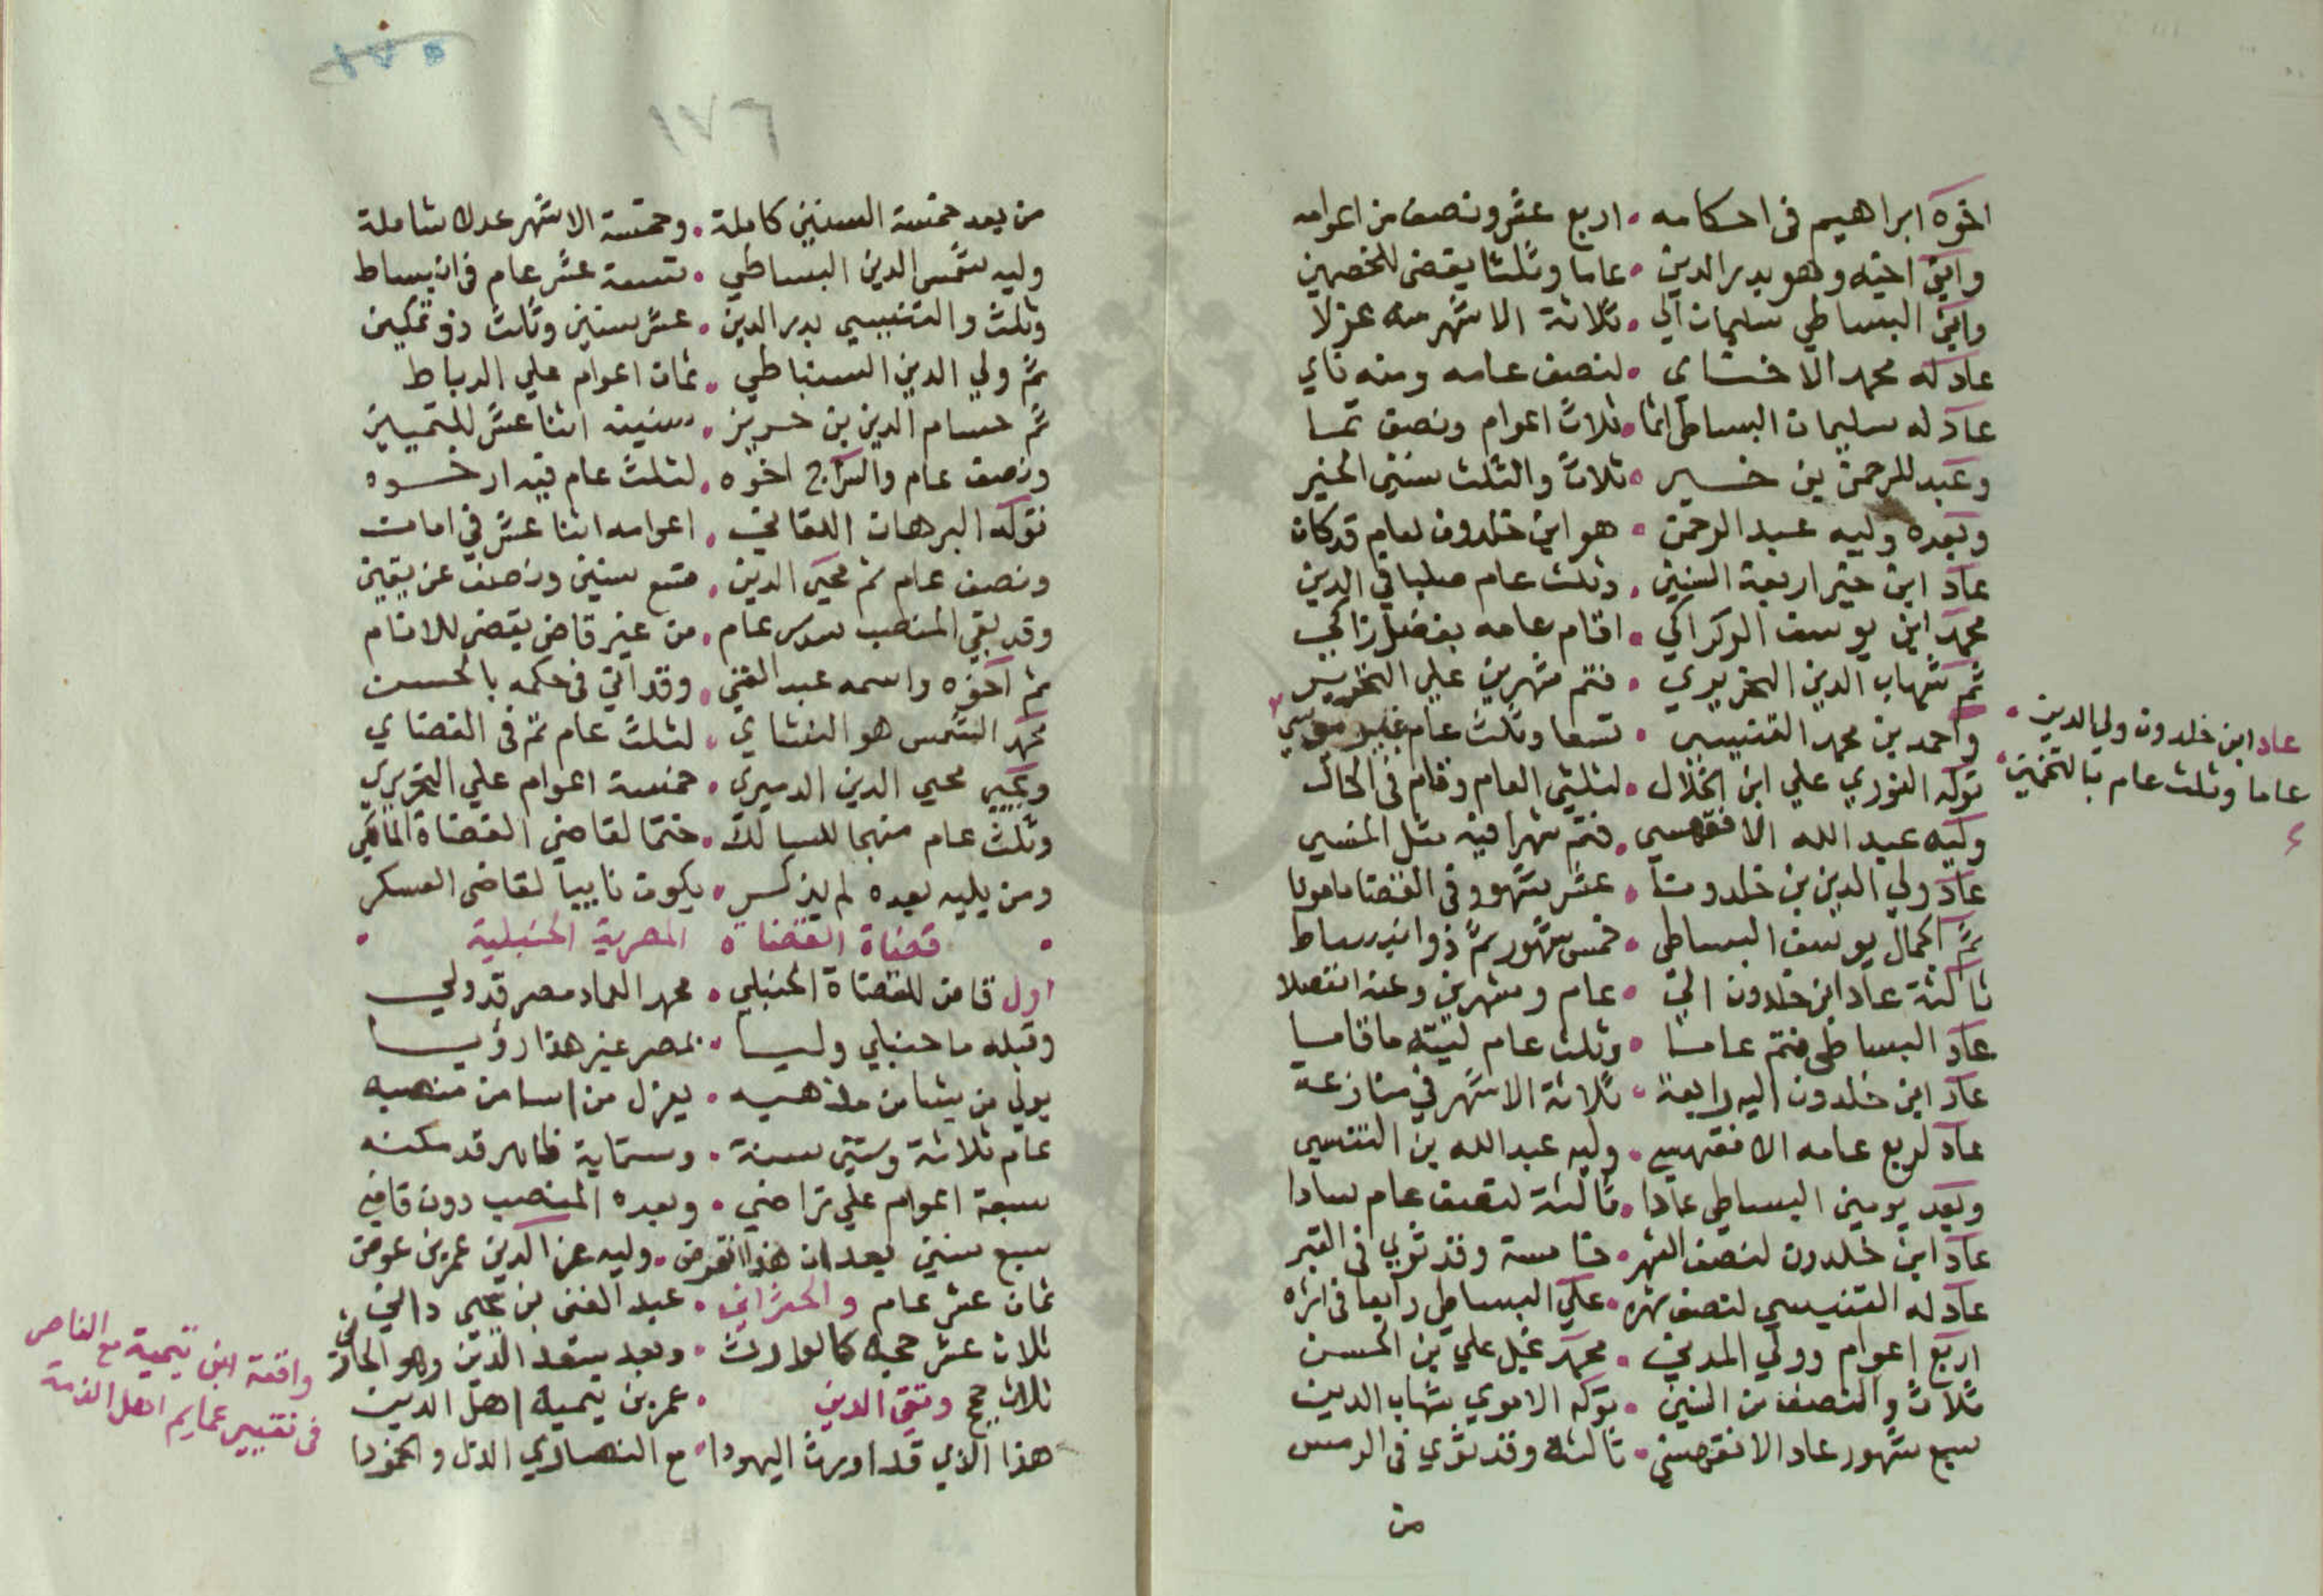 اخوه ابراهيم فى احكامه • اربع عشر ونصف من اعوامه
وابن اخيه وهو بدر الدين • عاما وثلثا يقضى للخصمين
وابن البساطي سليمان الي • ثلاثة الاشهر منه عزلا
عاد له محمد الاخناى • لنصف عامه ومنه ناي
عاد له سليمان البساطى انما • ثلاث اعوام ونصف تما
وعبد الرحمن بن خير • ثلاث والثلث سنين الخير
وبعده وليه عبد الرحمن • هو ابن خلدون لعام قد كان
عاد ابن خير اربعة السنين • وثلث عام صلبا في الدين
محمد ابن يوسف الركراكي • اقام عامه بفضل زاكي
ثم شهاب الدين النحريري • فتم شهرين علي التحرير
واحمد بن محمد التنسي • تسعا وثلث عام غير موسي
عاد ابن خلدون ولي الدين •
عاما وثلث عام بالتخمين
توكه النوري علي ابن الخلال • لثلثي العام وقام فى الحال
وليه عبد الله الاقفهسي • فتم شهرا فيه مثل المنسي
عاد ولي الدين بن خلدونا • عشر شهور وفى القضا مامونا
ثم الجمال يوسف البساطى • خمس شهور ثم ذو انبساط
ثالثة عاد ابن خلدون الي • عام وشهرين وعنه انفصلا
عاد البساطى فتم عاما • وثلث عام ليته ما قاما
عاد ابن خلدون اليه رابعة • ثلاثة الاشهر في منازعة
عاد لربع عامه الاقفهسي • وليه عبد الله بن التنسي
وبعد يومين البساطي عادا • ثالثة لنصف عام سادا
عاد ابن خلدون لنصف الشهر • خامسة وقد ثوي فى القبر
عاد له التنسي لنصف شهره • علي البساطي رابعا فى اثره
اربع اعوام وولي المدني • محمد نجل علي بن الحسن
ثلاث والنصف من السنين • توكه الاموي شهاب الدين
سبع شهور عاد الاقفهسي • ثالثة وقد ثوي فى الرمس
من
١٧٦
من بعد خمسة السنين كاملة • وخمسة الاشهر عدلا شاملة
وليه شمس الدين البساطي • تسعة عشر عام فى انبساط
وثلث والتنسي بدر الدين • عشر سنين وثلث ذو تمكين
ثم ولي الدين السنباطي • ثمان اعوام علي الرباط
ثم حسام الدين بن حريز • سنينه اثنا عشر للتمييز
ونصف عام والسراج اخوه • لثلث عام فيه ارخوه
توكه البرهان اللقاني • اعوامه اثنا عشر في امان
ونصف عام ثم محيي الدين • تسع سنين ونصف عن يقين
وقد بقي المنصب سدس عام • من غير قاض يقضى للانام
ثم اخوه واسمه عبد الغني • وقد اتي فى حكمه بالحسن
محمد الشمس هو التتاي • لثلث عام تم فى القضاي
ويحيي محيي الدين الدميري • خمسة اعوام علي التحرير
وثلث عام منهجا للسالك • ختما لقاضي القضاة المالكي
ومن يليه بعده لم يذكر • يكون نايبا لقاضى العسكر
• قضاة القضاة المصرية الحنبلية •
اول قاض للقضاة الحنبلي • محمد العماد مصر قد ولي
وقبله ما حنبلي وليا • بمصر غير هذا رؤيا
يولي من يشا من مذهبه • يعزل من اسا من منصبه
عام ثلاثة وستين سنة • وستماية ظاهر قد مكنه
سبعة اعوام علي تراضي • وبعده المنصب دون قاضي
سبع سنين بعد ان هذا انقرض • وليه عز الدين عمر بن عوض
ثمان عشر عام والحراني • عبد الغني بن يحيى داني
ثلاث عشر حجة كالوارث • وبعد سعد الدين وهو الحارثي
ثلاث حجج وتقي الدين • عمر بن تيمية اهل الدين
هذا الذي قد اورث اليهودا • مع النصارى الذل والخمودا
واقعة ابن تيمية مع الناصر
فى تغيير عمايم اهل الذمة